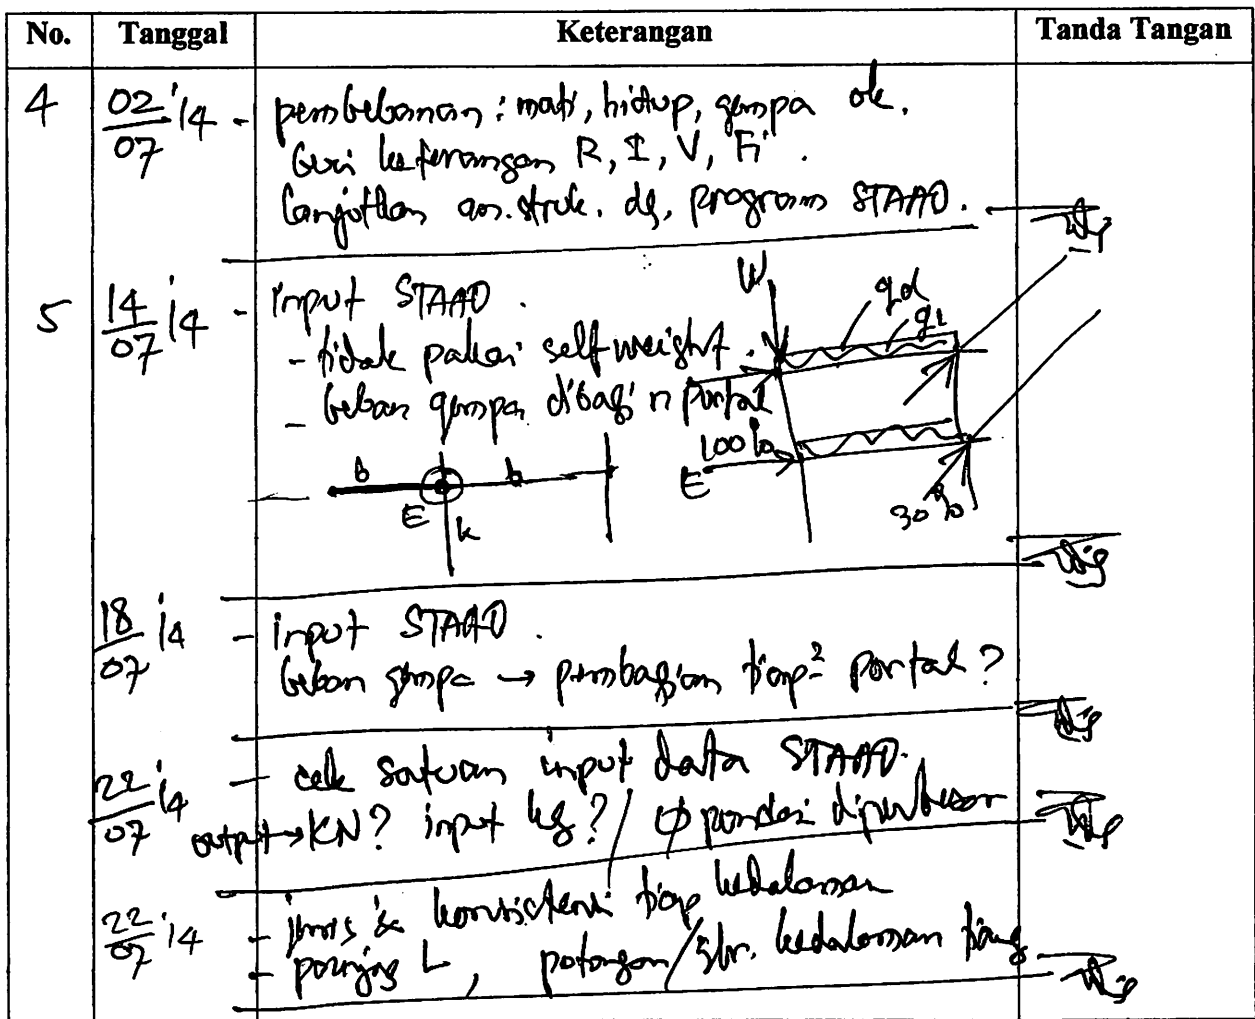 No. Tanggal Keterangan Tanda Tangan
4 02/07 '14 - pembebanan : mati, hidup, gempa ok.
beri keterangan R, I, V, Fi.
lanjutkan an. struk. dg. program STAAD.
5 14/07 '14 - input STAAD.
- tidak pakai selfweight.
- beban gempa dibagi n portal
W qd qL
E 100% 30%
b b E k
18/07 '14 - input STAAD.
beban gempa → pembagian tiap² portal?
22/07 '14 - cek satuan input data STAAD.
output → KN? input kg? / φ pondasi diperbesar
22/07 '14 - jenis & konsistensi tiap kedalaman
- panjang L, potongan / kedalaman tiang